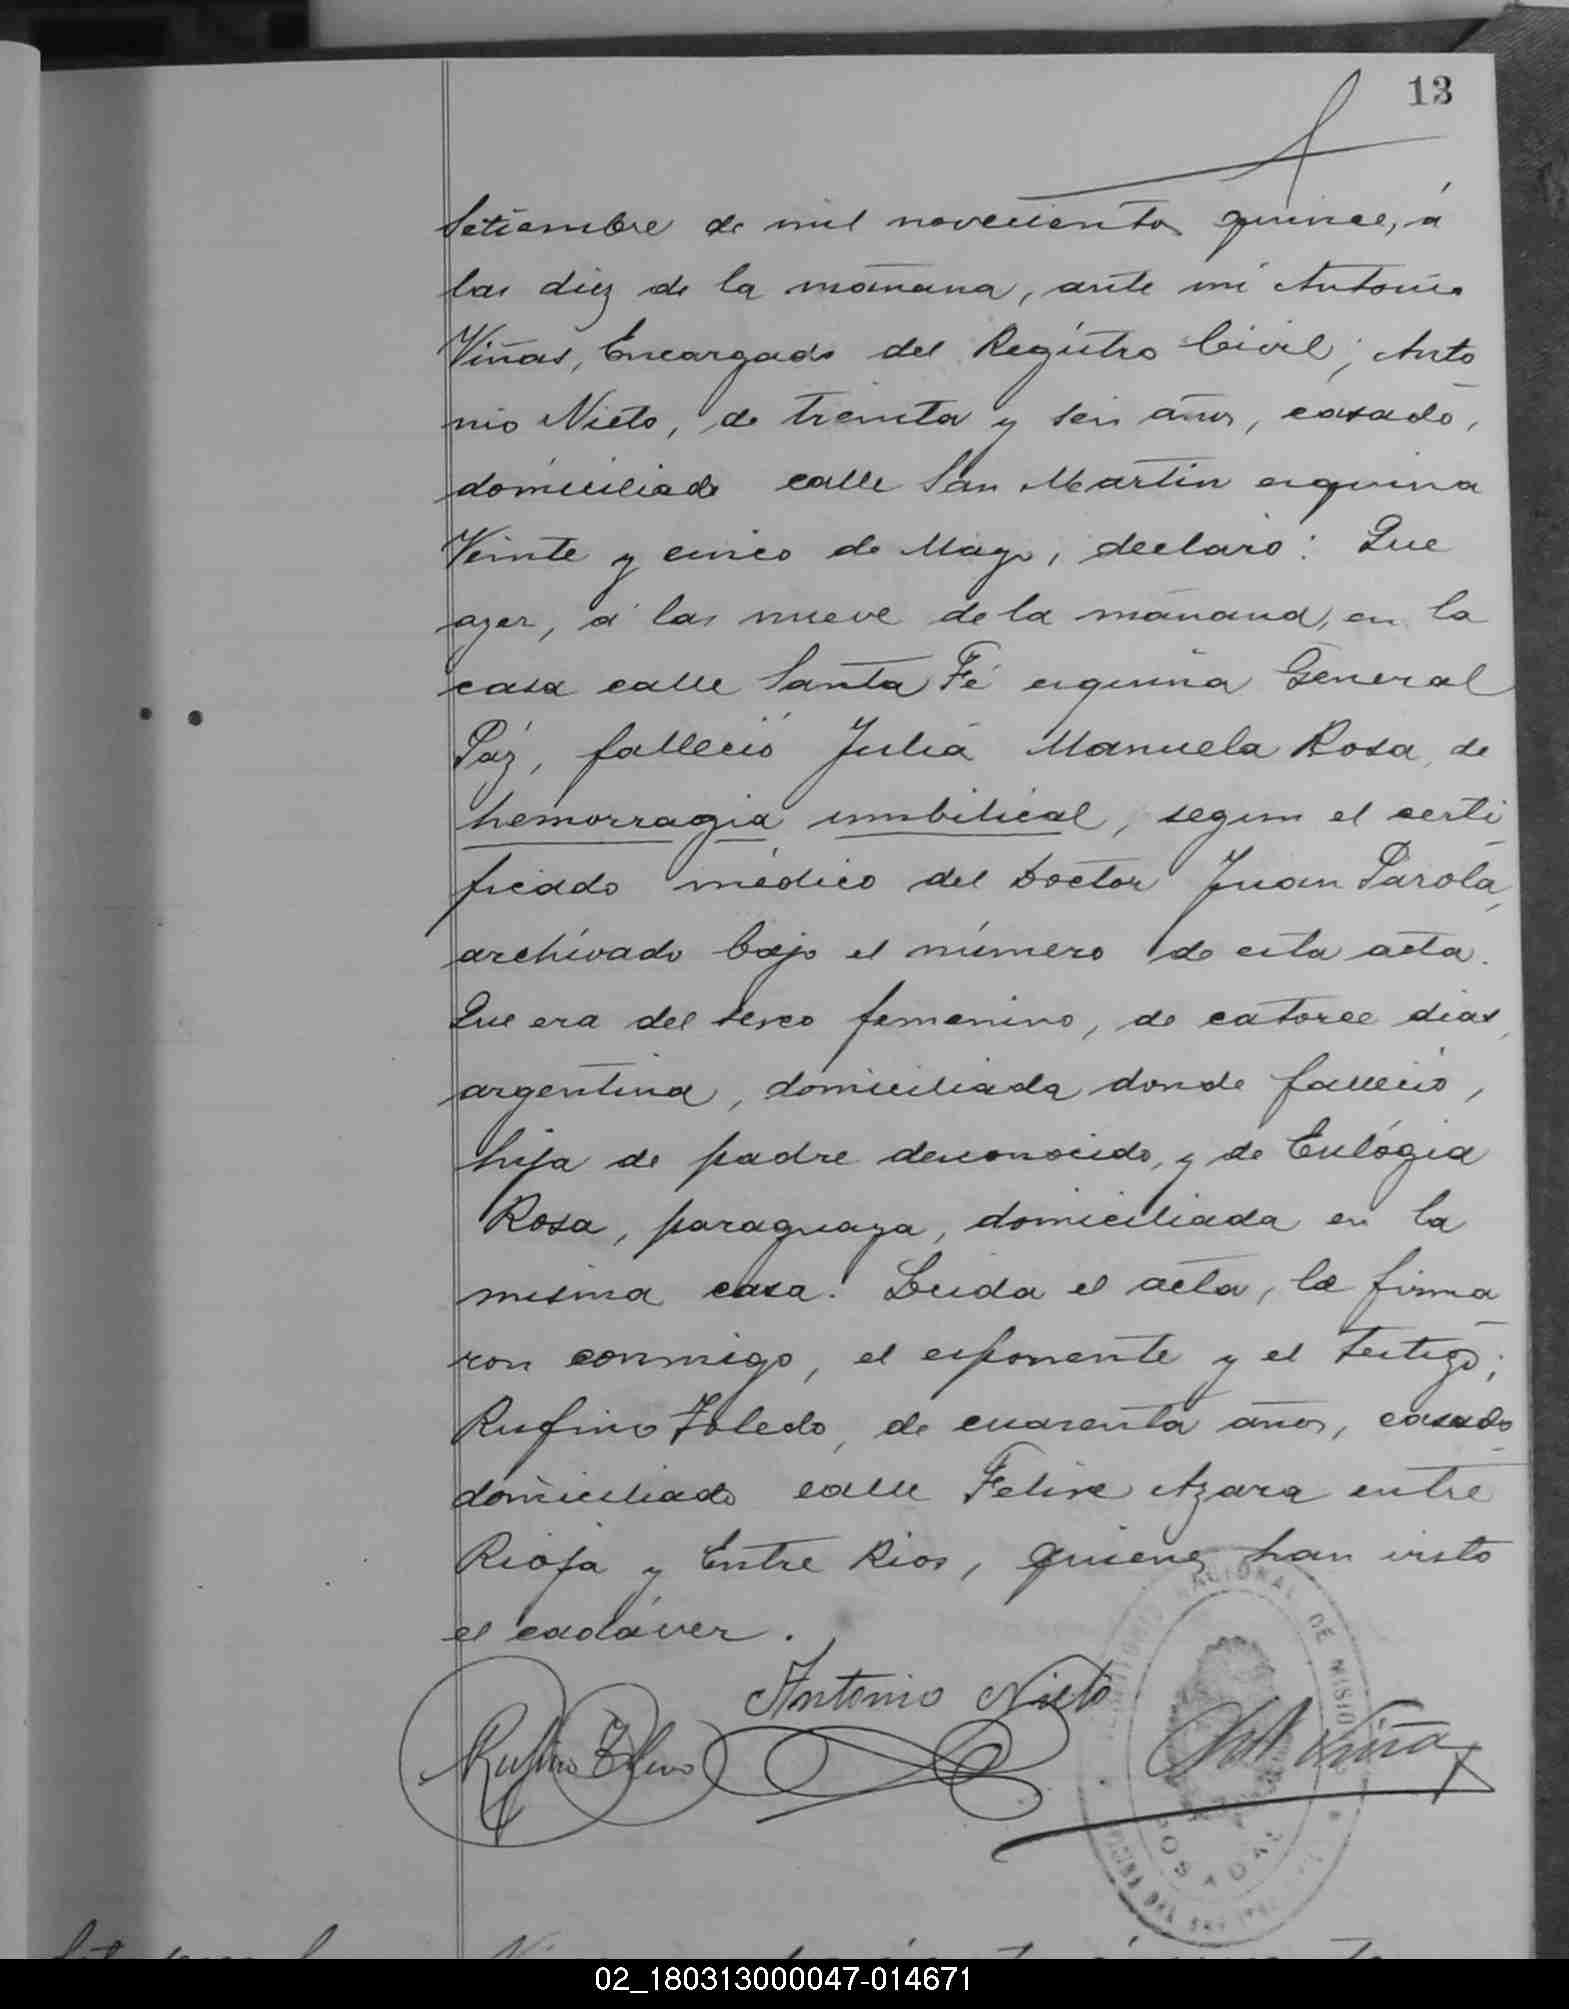 13
Setiembre de mil novecientos quince, á
las diez de la mañana, ante mi Antonio
Viñas, Encargado del Registro Civil; Anto
nio Nieto, de treinta y seis años, casado,
domiciliado calle San Martin esquina
Veinte y cinco de Mayo, declaró: Que
ayer, á las nueve de la mañana, en la
casa calle Santa Fé esquina General
Paz, falleció Julia Manuela Rosa, de
hemorragia umbilical, segun el certi
ficado médico del Doctor Juan Parola,
archivado bajo el número de esta acta.
Que era del sexo femenino, de catorce dias,
argentina, domiciliada donde falleció,
hija de padre desconocido, y de Eulógia
Rosa, paraguaya, domiciliada en la
misma casa. Leida el acta, la firma
ron conmigo, el esponente y el testigo;
Rufino Toledo, de cuarenta años, casado
domiciliado calle Felix Azara entre
Rioja y Entre Rios, quienes han visto
el cadáver.
Antonio Nieto
Rufino Toledo
Ant Viñas
NACIONAL DE MISIONES
POSADAS
02_180313000047-014671